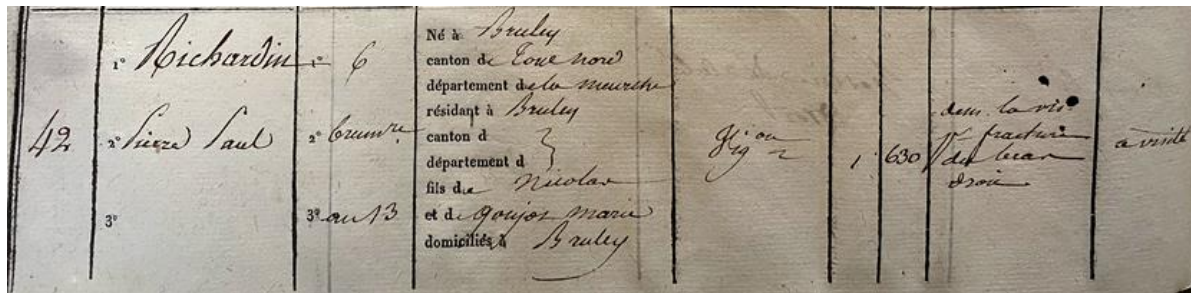 42
1° Richardin
2° Pierre Paul
3°
1° 6
2° brumre
3° au 13
Né à Bruley
canton de Toul nord
département de la meurthe
résidant à Bruley
canton d
département d
fils de Nicolas
et de goujot marie
domiciliés à Bruley
1, 630
dem. la vis.
pr fracture
du bras
droit
a visité